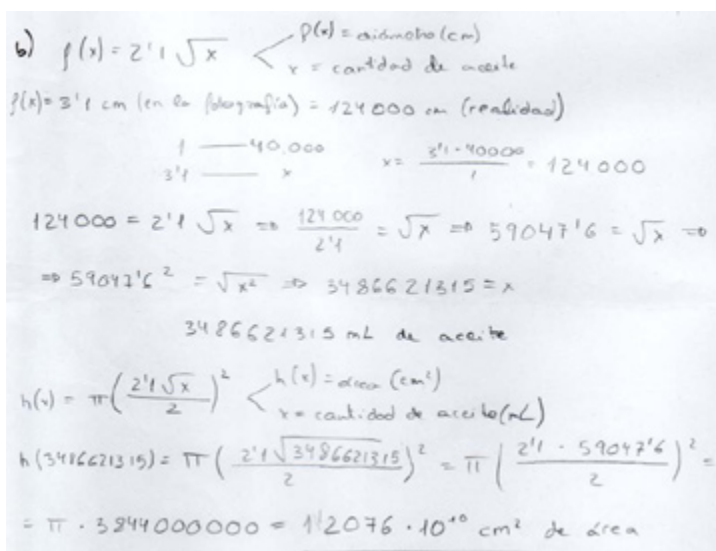 b) f(x) = 2'1 √x < f(x) = diámetro (cm)
x = cantidad de aceite
f(x) = 3'1 cm (en la fotografía) = 124000 cm (realidad)
1 —— 40.000
3'1 —— x
x = 3'1 · 40000 / 1 = 124000
124000 = 2'1 √x ⇒ 124000 / 2'1 = √x ⇒ 59047'6 = √x ⇒
⇒ 59047'6² = √x² ⇒ 3486621315 = x
3486621315 mL de aceite
h(x) = π (2'1 √x / 2)² < h(x) = área (cm²)
x = cantidad de aceite (mL)
h(3486621315) = π (2'1 √3486621315 / 2)² = π (2'1 · 59047'6 / 2)² =
= π · 3844000000 = 1'2076 · 10¹⁰ cm² de área